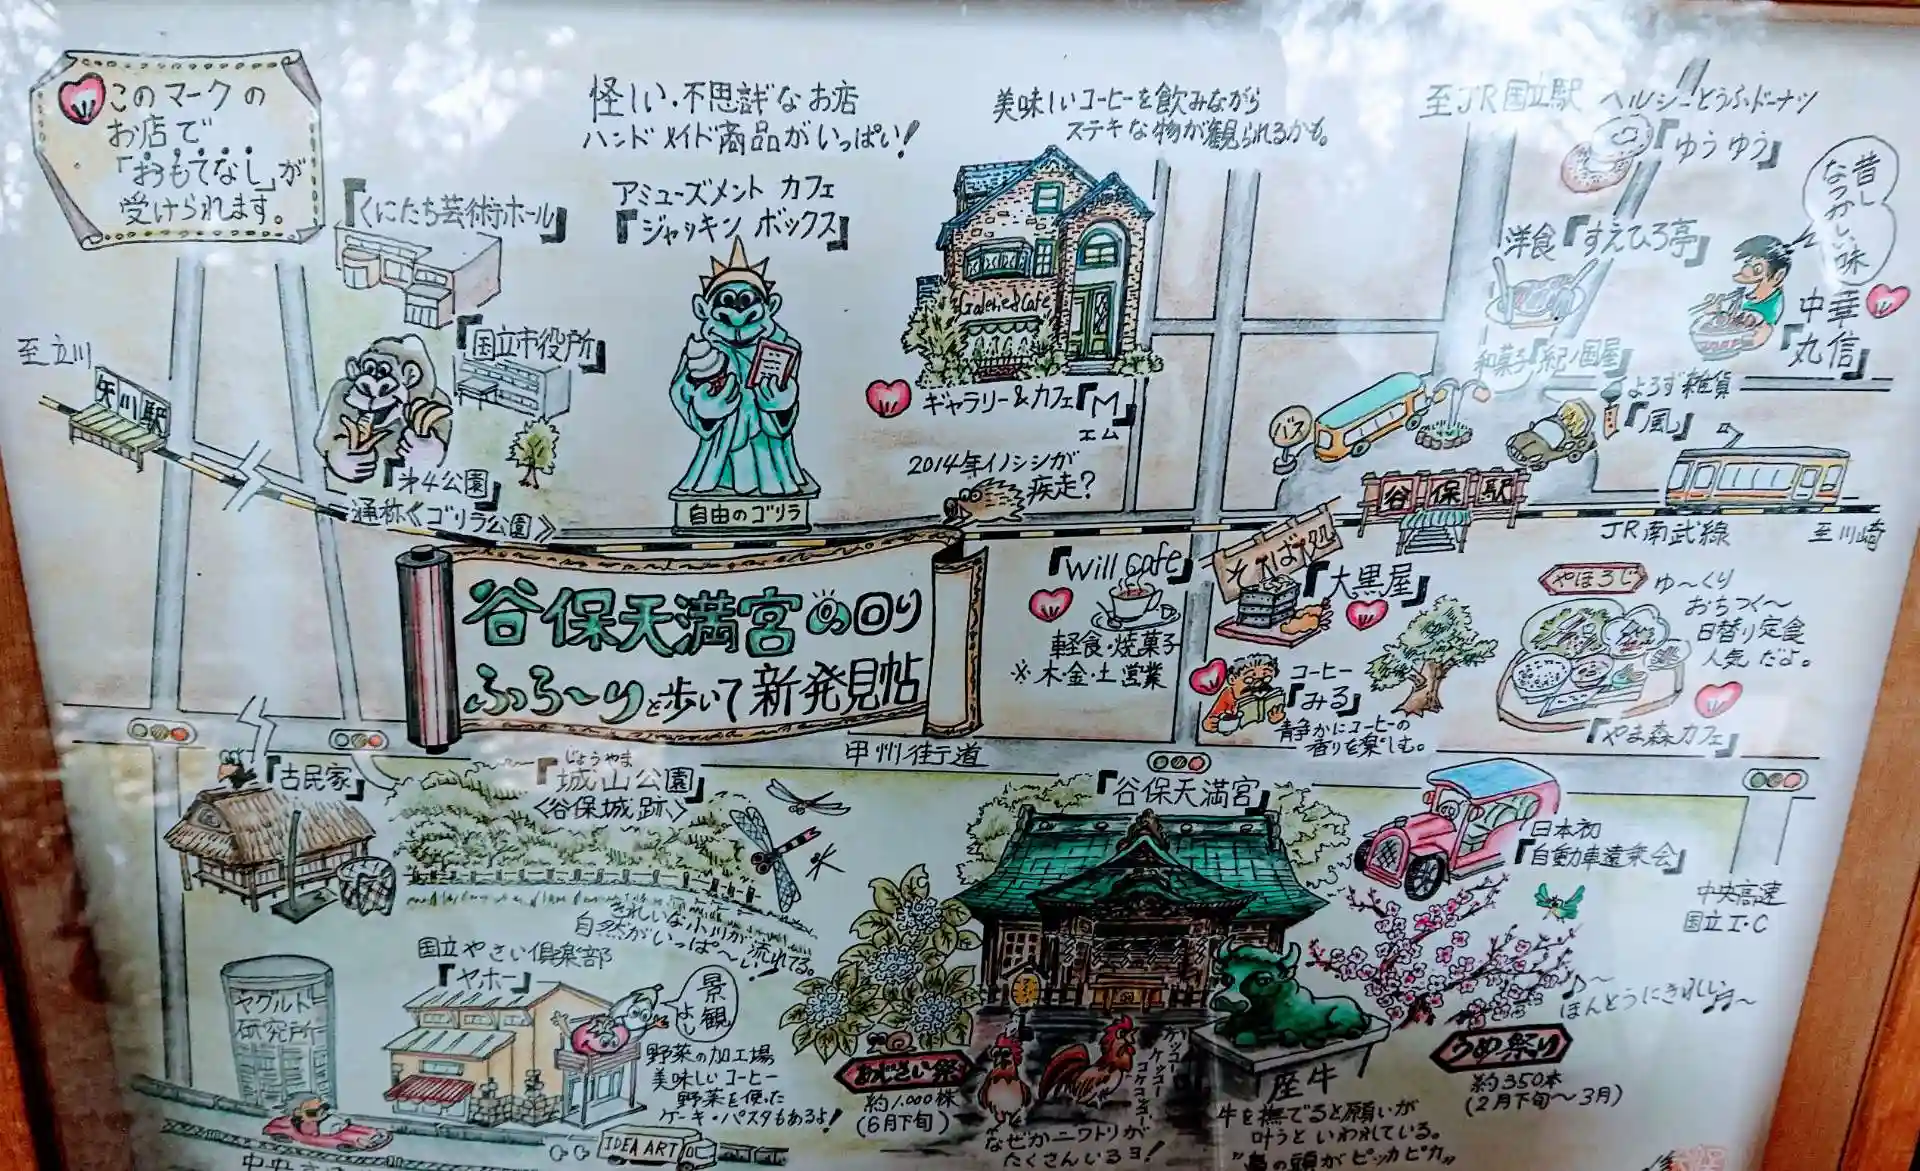 このマークの
お店で
「おもてなし」が
受けられます。
怪しい・不思議なお店
ハンドメイド商品がいっぱい!
アミューズメント カフェ
『ジャッキン ボックス』
自由のゴリラ
美味しいコーヒーを飲みながら
ステキな物が観られるかも。
Galerie & Cafe
ギャラリー&カフェ『M』
エム
2014年イノシシが
疾走?
至JR国立駅
ヘルシーとうふドーナツ
『ゆうゆう』
洋食『すえひろ亭』
昔し
なつかしい味
中華
『丸信』
和菓子『紀ノ国屋』
よろず雑貨
『風』
バス
谷保駅
JR南武線
至川崎
『くにたち芸術ホール』
『国立市役所』
至立川
矢川駅
『第4公園』
通称《ゴリラ公園》
谷保天満宮の回り
ふら〜りと歩いて新発見帖
『Will Cafe』
軽食・焼菓子
※木・金・土営業
そば処
『大黒屋』
コーヒー
『みる』
静かにコーヒーの
香りを楽しむ。
やほろじ
ゆ〜くり
おちつく〜
日替り定食
人気だよ。
『やま森カフェ』
甲州街道
『古民家』
じょうやま
『城山公園』
<谷保城跡>
きれいな小川が流れてる。
自然がいっぱ〜い!
『谷保天満宮』
日本初
『自動車遠乗会』
中央高速
国立I・C
ヤクルト
研究所
国立やさい倶楽部
『ヤホー』
景観
よし
野菜の加工場
美味しいコーヒー
野菜を使った
ケーキ・パスタもあるよ!
IDEA ART
あじさい祭
約1,000株
(6月下旬)
なぜかニワトリが
たくさんいるヨ!
座牛
牛を撫でると願いが
叶うといわれている。
ほんとうにきれしい
うめ祭り
約350本
(2月下旬〜3月)